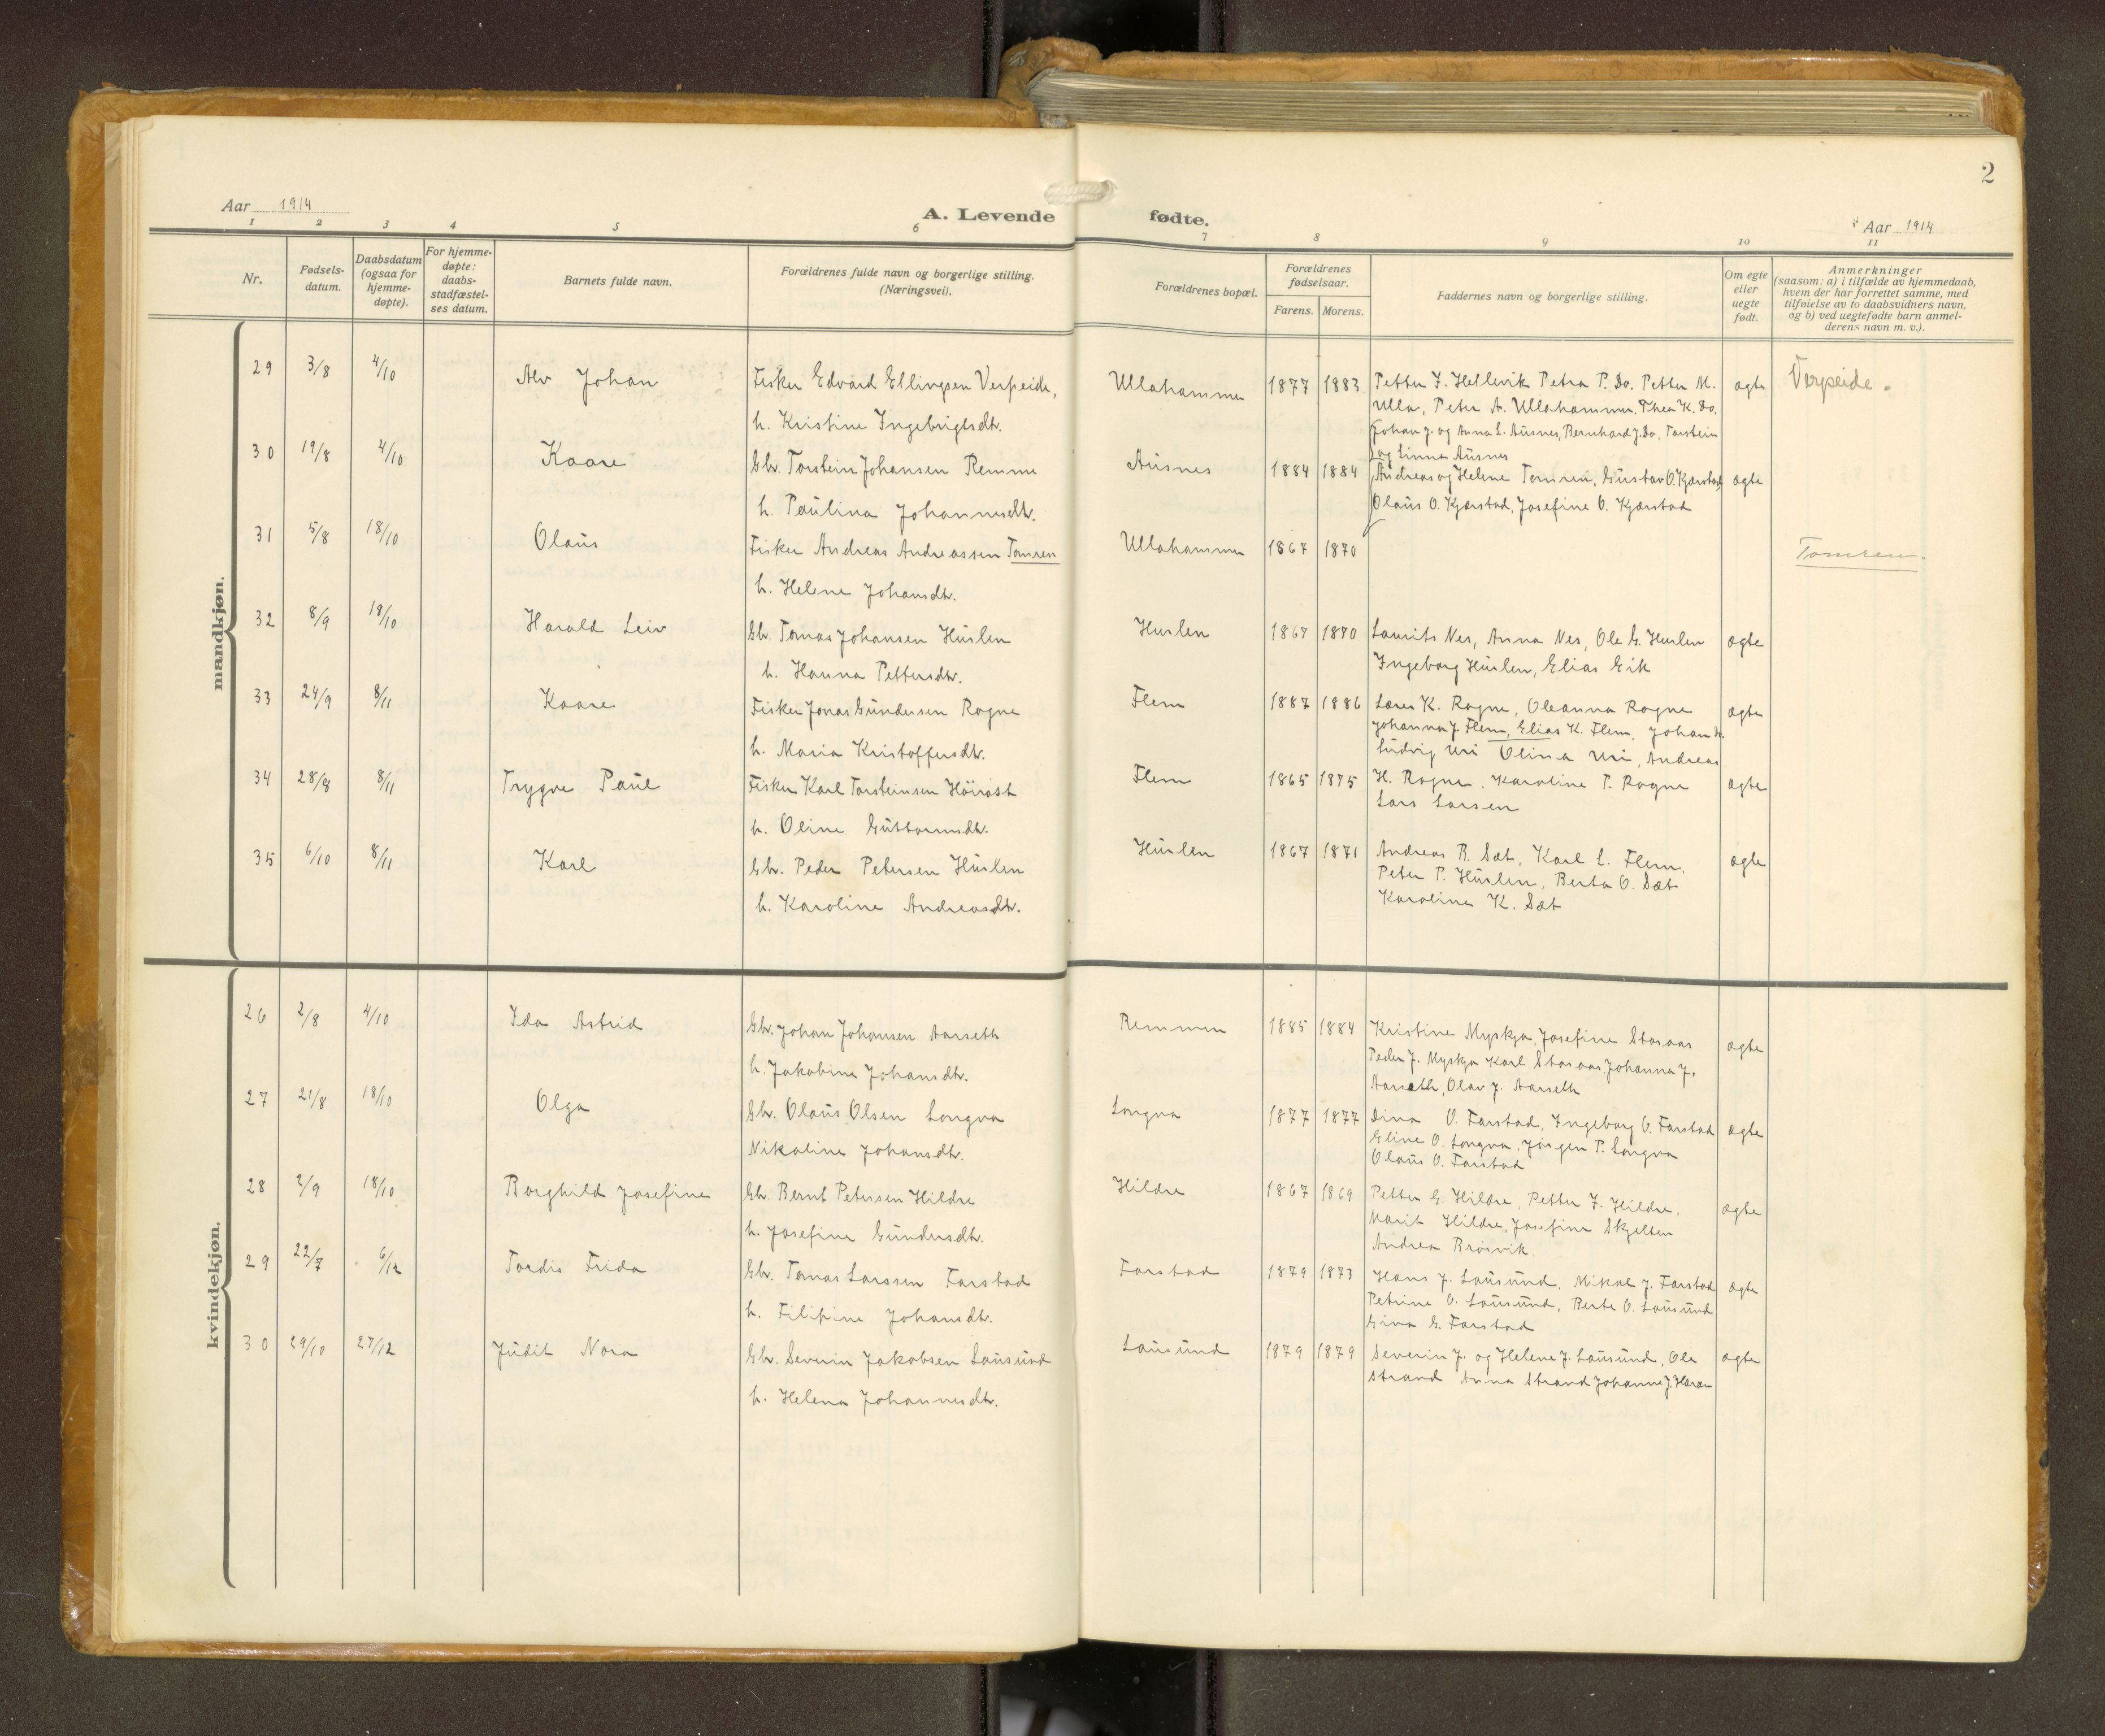 2
Aar 1914
A. Levende fødte.
Aar 1914
1 2 3 4 5 6 7 8 9 10 11
Nr.
Fødsels-
datum.
Daabsdatum
(ogsaa for
hjemme-
døpte).
For hjemme-
døpte:
daabs-
stadfæstel-
ses datum.
Barnets fulde navn.
Forældrenes fulde navn og borgerlige stilling.
(Næringsvei).
Forældrenes bopæl.
Forældrenes
fødselsaar.
Farens. Morens.
Faddernes navn og borgerlige stilling.
Om egte
eller
uegte
født.
Anmerkninger
(saasom: a) i tilfælde av hjemmedaab,
hvem der har forrettet samme, med
tilføielse av to daabsvidners navn,
og b) ved uegtefødte barn anmel-
derens navn m. v.).
mandkjøn.
29 3/8 4/10 Alv Johan Fisker Edvard Ellingsen Verpeide, Ullahammer 1877 1883 Petter F. Hellevik Petra P. Do. Petter M. ægte Verpeide.
h. Kristine Ingebrigtsdtr. Ulla, Peter A. Ullahammer. Thea K. Do.
Johan J. og Anna L. Ausnes, Bernhard J. Do, Torstein
og Linna Ausnes
30 19/8 4/10 Kaare Gbr. Torstein Johansen Remme Ausnes 1884 1884 Andreas og Helene Tomren, Gustav O. Kjærstad, ægte
h. Paulina Johannesdtr. Olaus O. Kjærstad, Josefine O. Kjærstad
31 5/8 18/10 Olaus Fisker Andreas Andreassen Tomren Ullahammer 1867 1870 Tomren.
h. Helene Johansdtr.
32 8/9 18/10 Harald Leiv Gbr. Tomas Johansen Huslen Huslen 1867 1870 Laurits Nes, Anna Nes, Ole G. Huslen ægte
h. Hanna Pettersdtr. Ingeborg Huslen, Elias Eik
33 24/9 8/11 Kaare Fisker Jonas Gundersen Rogne Flem 1887 1886 Lærer K. Rogne, Oleanna Rogne ægte
h. Maria Kristoffersdtr. Johanna J. Flem, Elias K. Flem, Johan
Ludvig Uri Olina Uri, Andreas
34 28/8 8/11 Trygve Paul Fisker Karl Torsteinsen Höirøst Flem 1865 1875 H. Rogne. Karoline P. Rogne ægte
h. Oline Guttormsdtr. Lars Larsen
35 6/10 8/11 Karl Gbr. Peder Petersen Huslen Huslen 1867 1871 Andreas R. Sæt, Karl L. Flem, ægte
h. Karoline Andreasdtr. Peter P. Huslen, Berta O. Sæt
Karoline K. Sæt
kvindekjøn.
26 2/8 4/10 Ida Astrid Gbr. Johan Johansen Aarseth Remmen 1885 1884 Kristine Myskja, Josefine Stasaas ægte
h. Jakobine Johansdtr. Peder J. Myskja Karl Stasaas, Johanna J.
Aarseth, Olav J. Aarseth
27 21/8 18/10 Olga Gbr. Olaus Olsen Longva Longva 1877 1877 Dina O. Farstad, Ingeborg O. Farstad ægte
Nikoline Johansdtr. Eline O. Longva, Jörgen P. Longva
Olaus O. Farstad
28 2/9 18/10 Borghild Josefine Gbr. Bernt Petersen Hildre Hildre 1867 1869 Petter G. Hildre, Petter F. Hildre, ægte
h. Josefine Gundersdtr. Marit Hildre, Josefine Skjelten
Andrea Brosvik.
29 22/7 6/12 Tordis Frida Gbr. Tomas Larssen Farstad Farstad 1879 1873 Hans J. Lausund, Mikal J. Farstad ægte
h. Filipine Johansdtr. Petrine O. Lausund, Berte O. Lausund
Gina G. Farstad
30 29/10 27/12 Judit Nora Gbr. Severin Jakobsen Lausund Lausund 1879 1879 Severin J. og Helene J. Lausund, Ole ægte
h. Helena Johannesdtr. Strand Anna Strand Johanne J. Haram